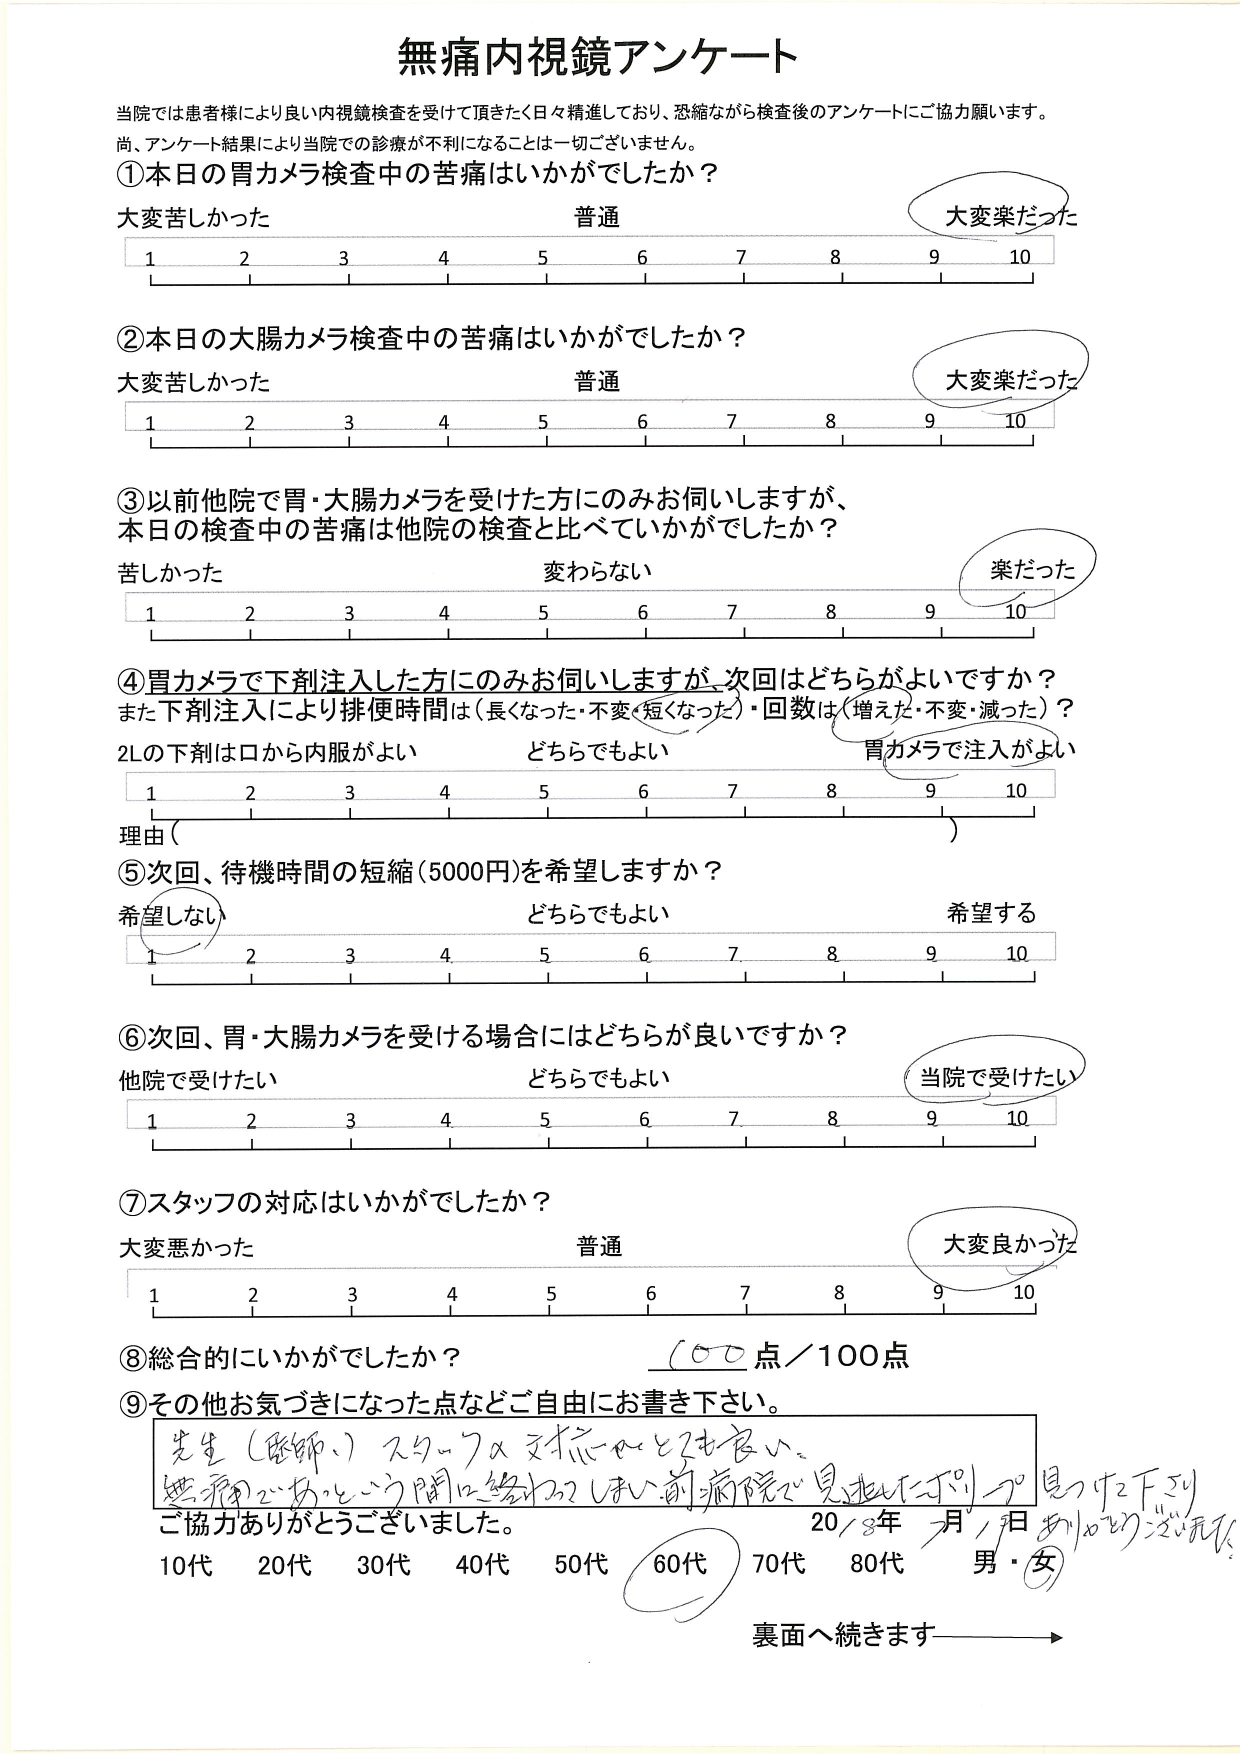 無痛内視鏡アンケート
当院では患者様により良い内視鏡検査を受けて頂きたく日々精進しており、恐縮ながら検査後のアンケートにご協力願います。
尚、アンケート結果により当院での診療が不利になることは一切ございません。
①本日の胃カメラ検査中の苦痛はいかがでしたか？
大変苦しかった 普通 大変楽だった
1 2 3 4 5 6 7 8 9 10
②本日の大腸カメラ検査中の苦痛はいかがでしたか？
大変苦しかった 普通 大変楽だった
1 2 3 4 5 6 7 8 9 10
③以前他院で胃・大腸カメラを受けた方にのみお伺いしますが、
本日の検査中の苦痛は他院の検査と比べていかがでしたか？
苦しかった 変わらない 楽だった
1 2 3 4 5 6 7 8 9 10
④胃カメラで下剤注入した方にのみお伺いしますが、次回はどちらがよいですか？
また下剤注入により排便時間は（長くなった・不変・短くなった）・回数は（増えた・不変・減った）？
2Lの下剤は口から内服がよい どちらでもよい 胃カメラで注入がよい
1 2 3 4 5 6 7 8 9 10
理由（ ）
⑤次回、待機時間の短縮（5000円）を希望しますか？
希望しない どちらでもよい 希望する
1 2 3 4 5 6 7 8 9 10
⑥次回、胃・大腸カメラを受ける場合にはどちらが良いですか？
他院で受けたい どちらでもよい 当院で受けたい
1 2 3 4 5 6 7 8 9 10
⑦スタッフの対応はいかがでしたか？
大変悪かった 普通 大変良かった
1 2 3 4 5 6 7 8 9 10
⑧総合的にいかがでしたか？ 100 点／100点
⑨その他お気づきになった点などご自由にお書き下さい。
先生（医師、）スタッフの対応がとても良い。
無痛であっという間に終わってしまい前病院で見逃したポリープ見つけて下さり
ありがとうございました。
ご協力ありがとうございました。 2018年 月 日
10代 20代 30代 40代 50代 60代 70代 80代 男・女
裏面へ続きます